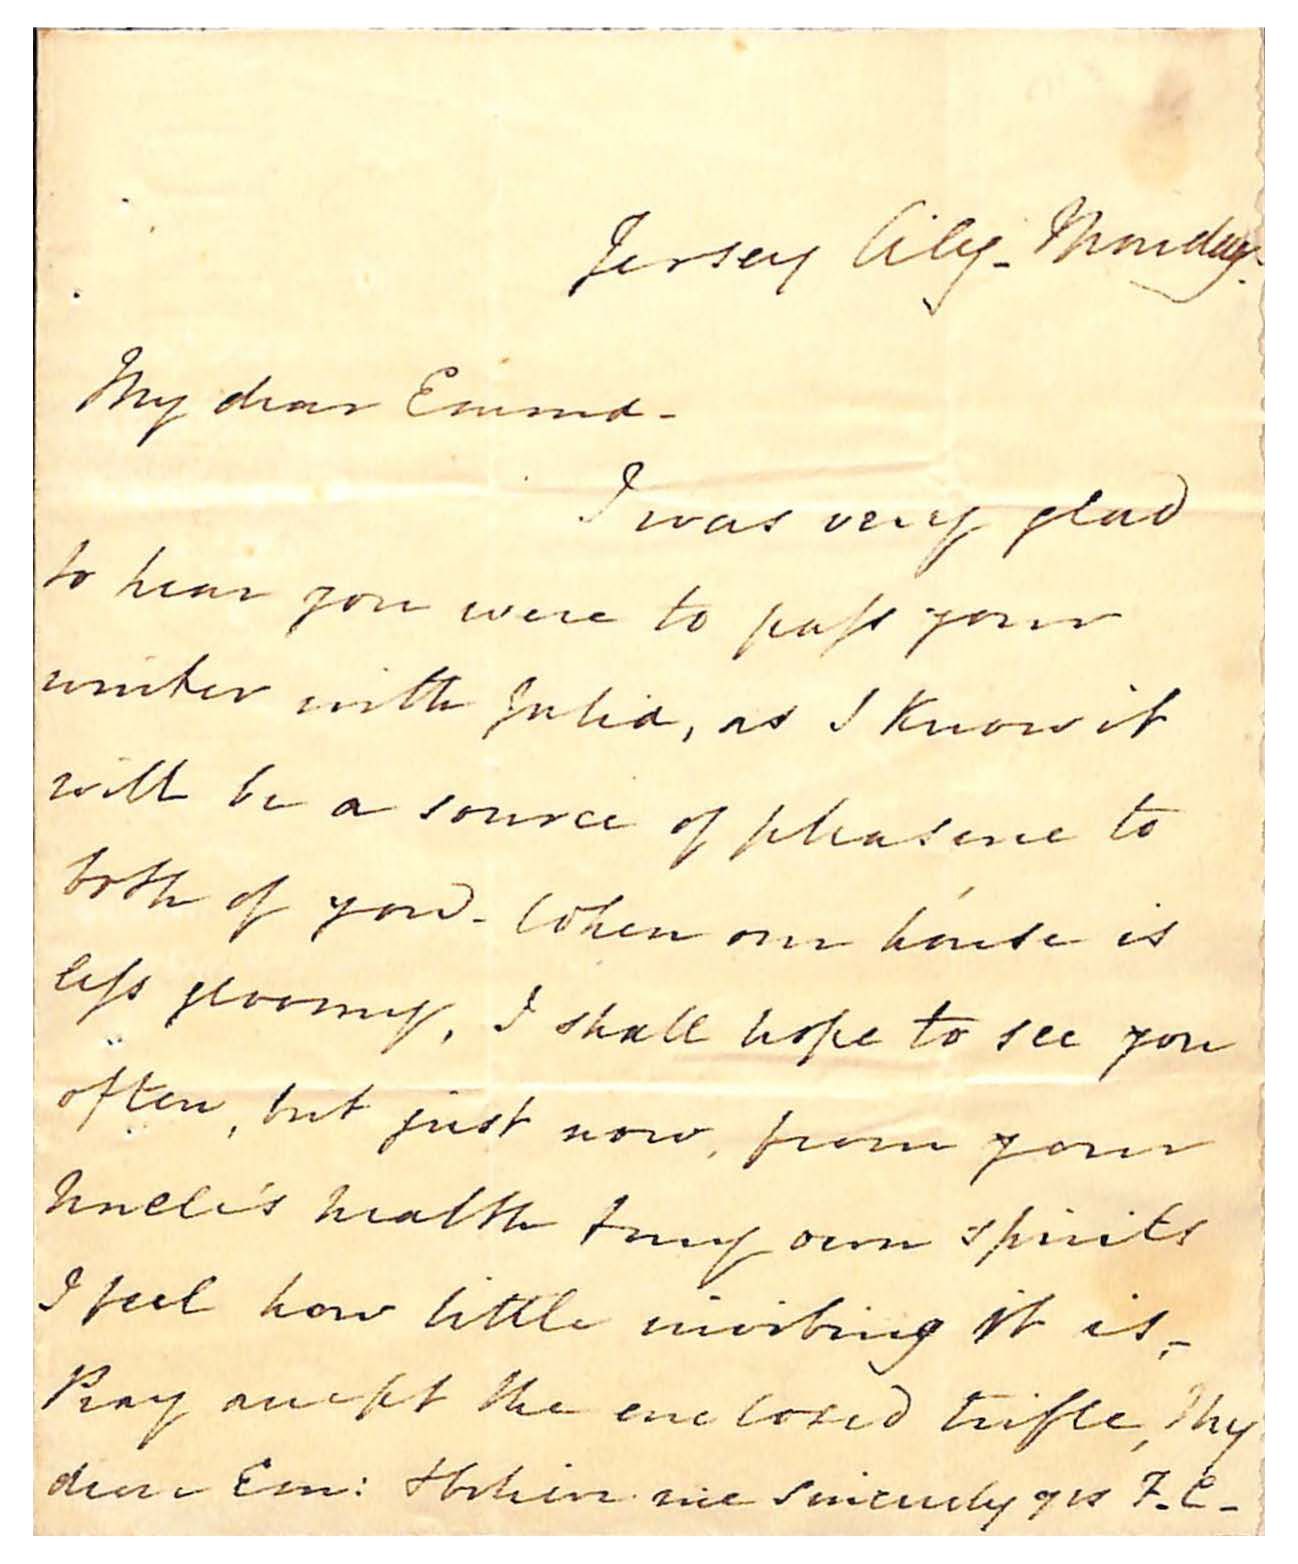 Jersey City - Monday.
My dear Emma -
I was very glad
to hear you were to pass your
winter with Julia, as I know it
will be a source of pleasure to
both of you - When our house is
less gloomy, I shall hope to see you
often, but just now, from your
Uncle's health & my own spirits
I feel how little inviting it is, -
Pray accept the enclosed trifle, My
dear Em: & believe me sincerely yrs F. C -